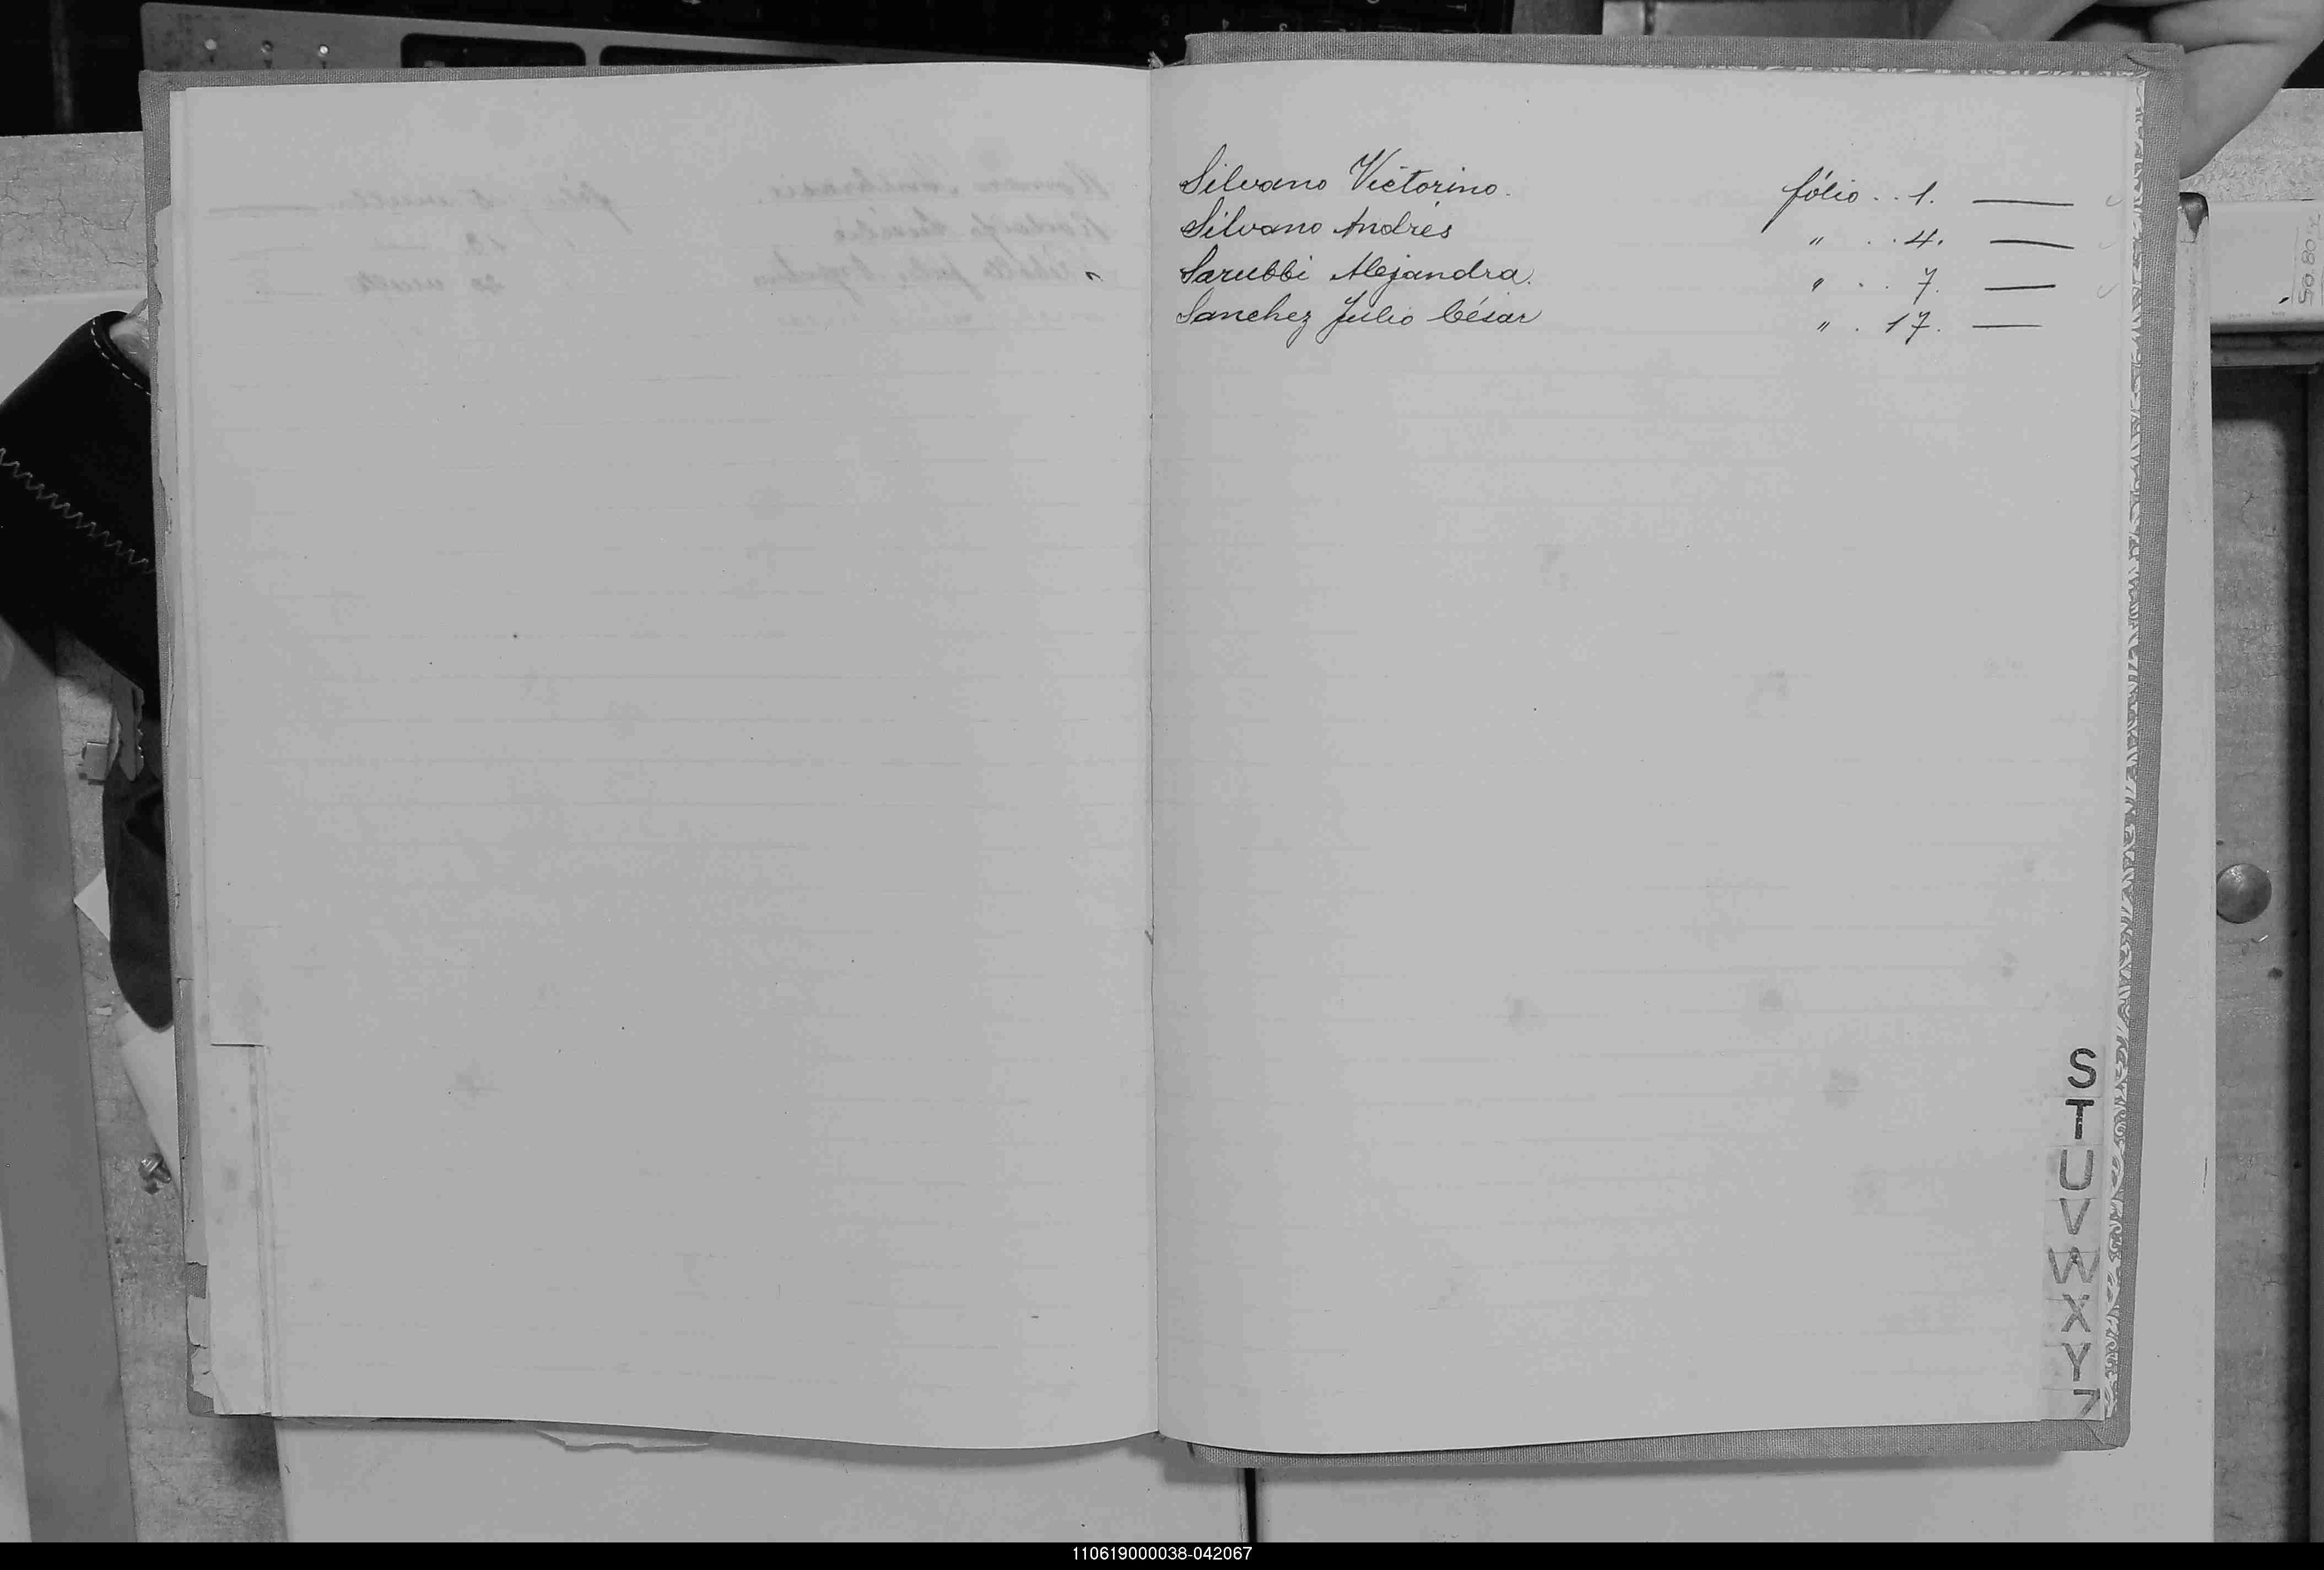 Silvano Victorino. fólio . . 1.
Silvano Andrés " . . 4.
Sarubbi Alejandra. " . . 7.
Sanchez Julio César " . 17.
S
T
U
V
W
X
Y
Z
110619000038-042067